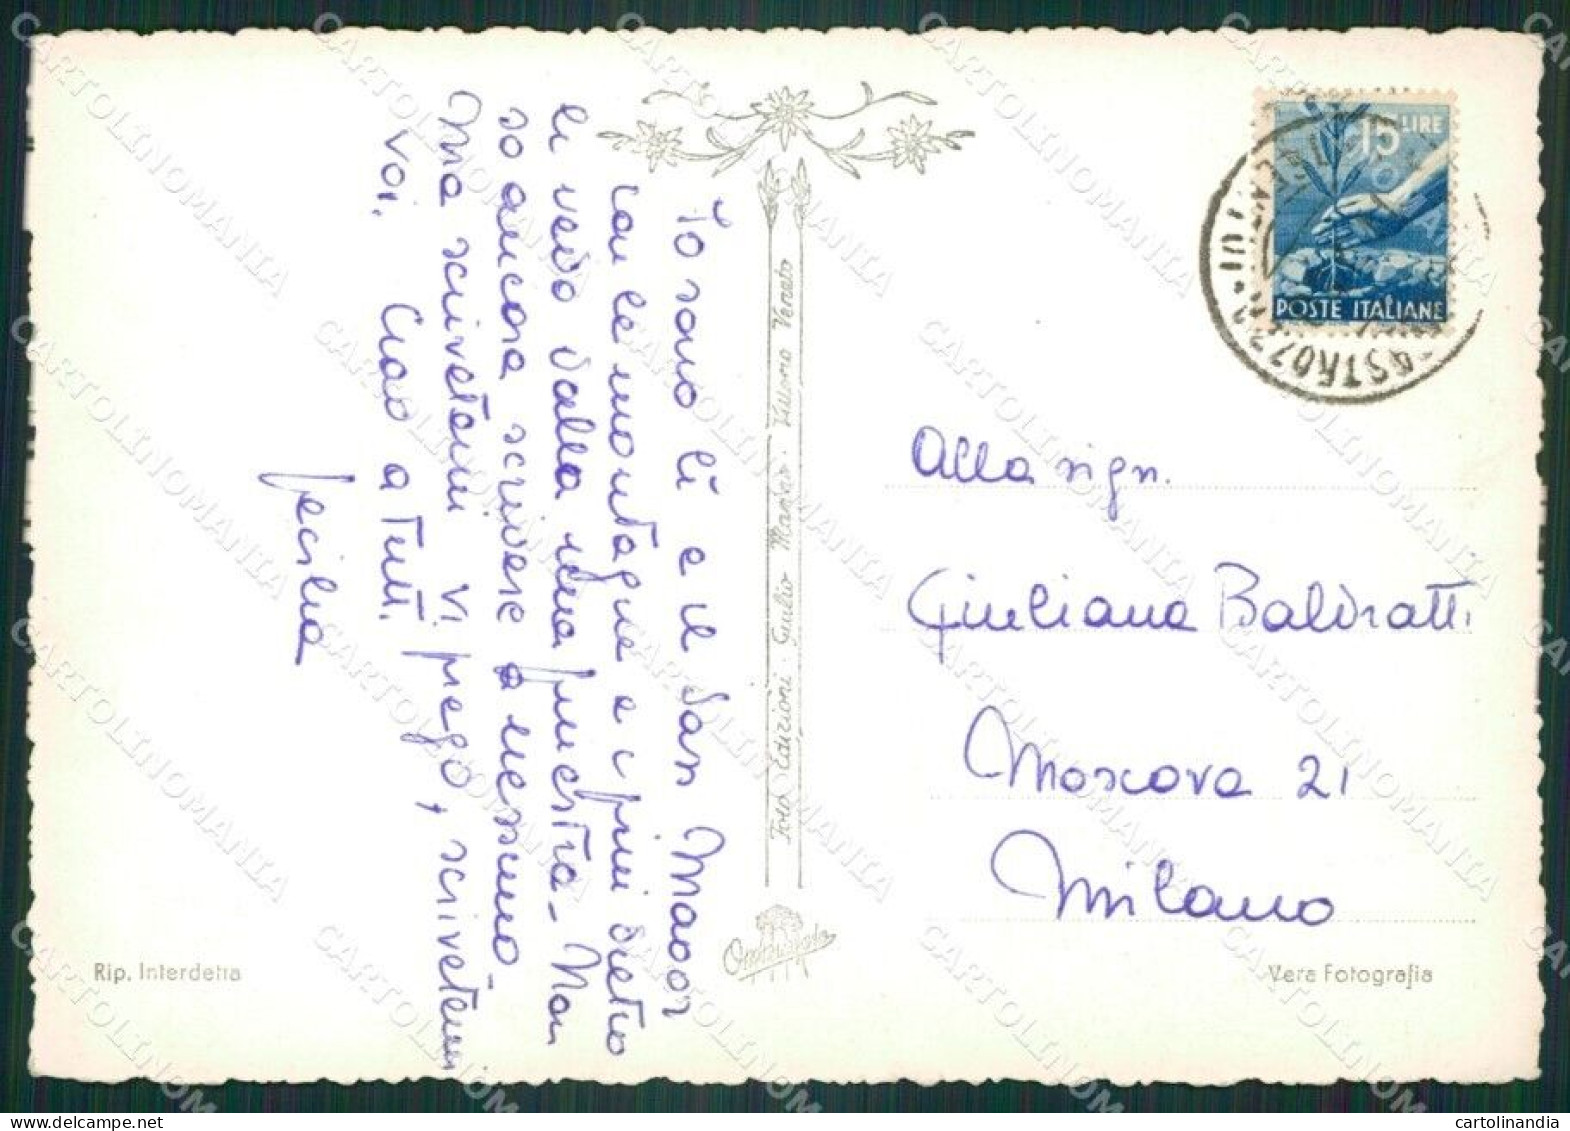 Io sono lì e il San Maoor
con le montagne e i pini dietro
le vedo dalla mia finestra - Non
so ancora scrivere a nessuno.
Ma scrivetemi vi prego, scrivetemi
voi. Ciao a tutti.
Cecilia
Foto Edizioni · Giulio Marino · Vittorio Veneto
15 LIRE
POSTE ITALIANE
Alla sign.
Giuliana Baldratti
Moscova 21
Milano
Rip. Interdetta
Vera Fotografia
CARTOLINOMANIA
cartolinandia